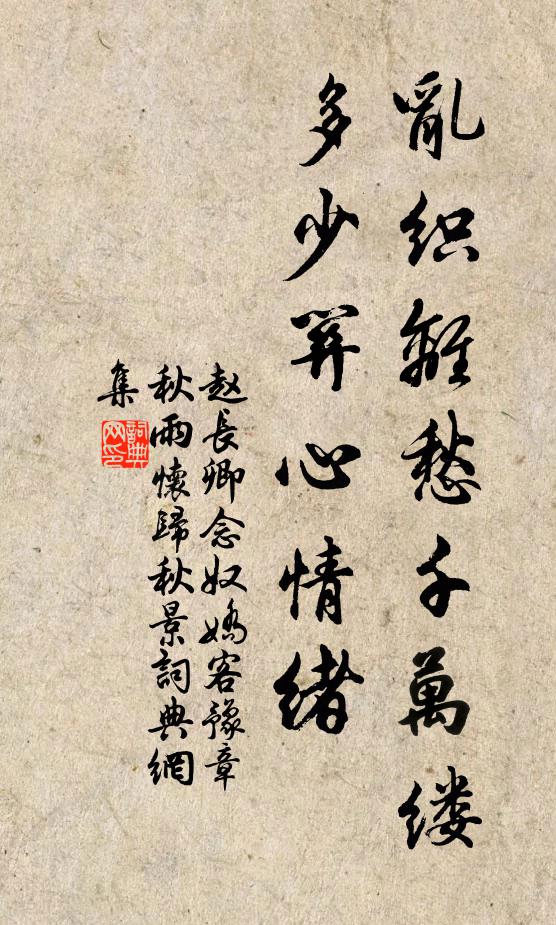 亂织離愁千萬缕
多少関心情緒
赵長卿念奴嬌客豫章
秋雨懷歸秋景詞典網
集
詞典
网印